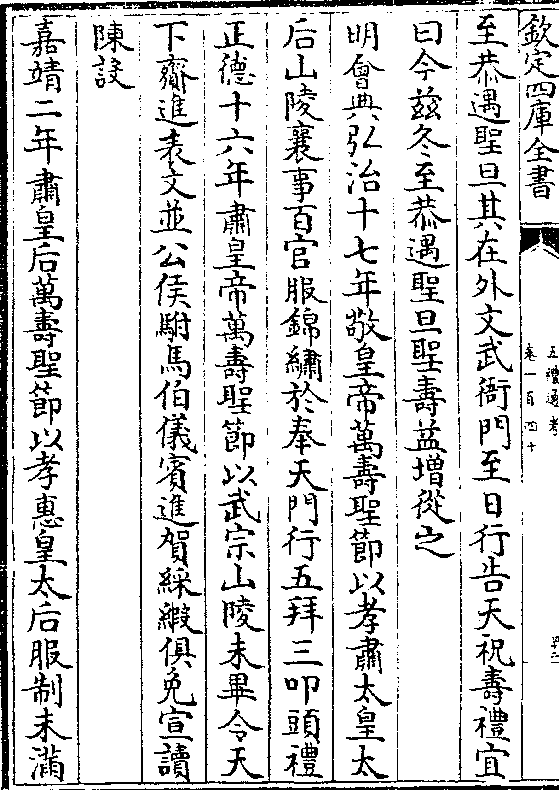 欽定四庫全書
五禮通考
卷一百四十
至恭遇聖旦其在外文武衙門至日行告天祝壽禮宜
曰今兹冬至恭遇聖旦聖壽益增從之
明會典弘治十七年敬皇帝萬壽聖節以孝肅太皇太
后山陵襄事百官服錦繡於奉天門行五拜三叩頭禮
正德十六年肅皇帝萬壽聖節以武宗山陵未畢令天
下齎進表文並公侯駙馬伯儀賓進賀綵緞俱免宣讀
陳設
嘉靖二年肅皇后萬壽聖節以孝惠皇太后服制未滿